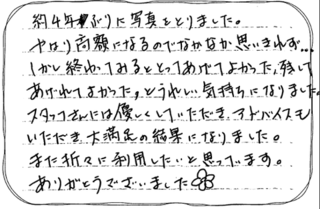 約4年ぶりに写真をとりました。
やはり高額になるのでなかなか思いきれず…
しかし終わってみるととってあげてよかった,残して
あげれてよかった,とうれしい気持ちになりました。
スタッフさんには優しくしていただき,アドバイスも
いただき大満足の結果になりました。
また折々に利用したいと思っています。
ありがとうございました